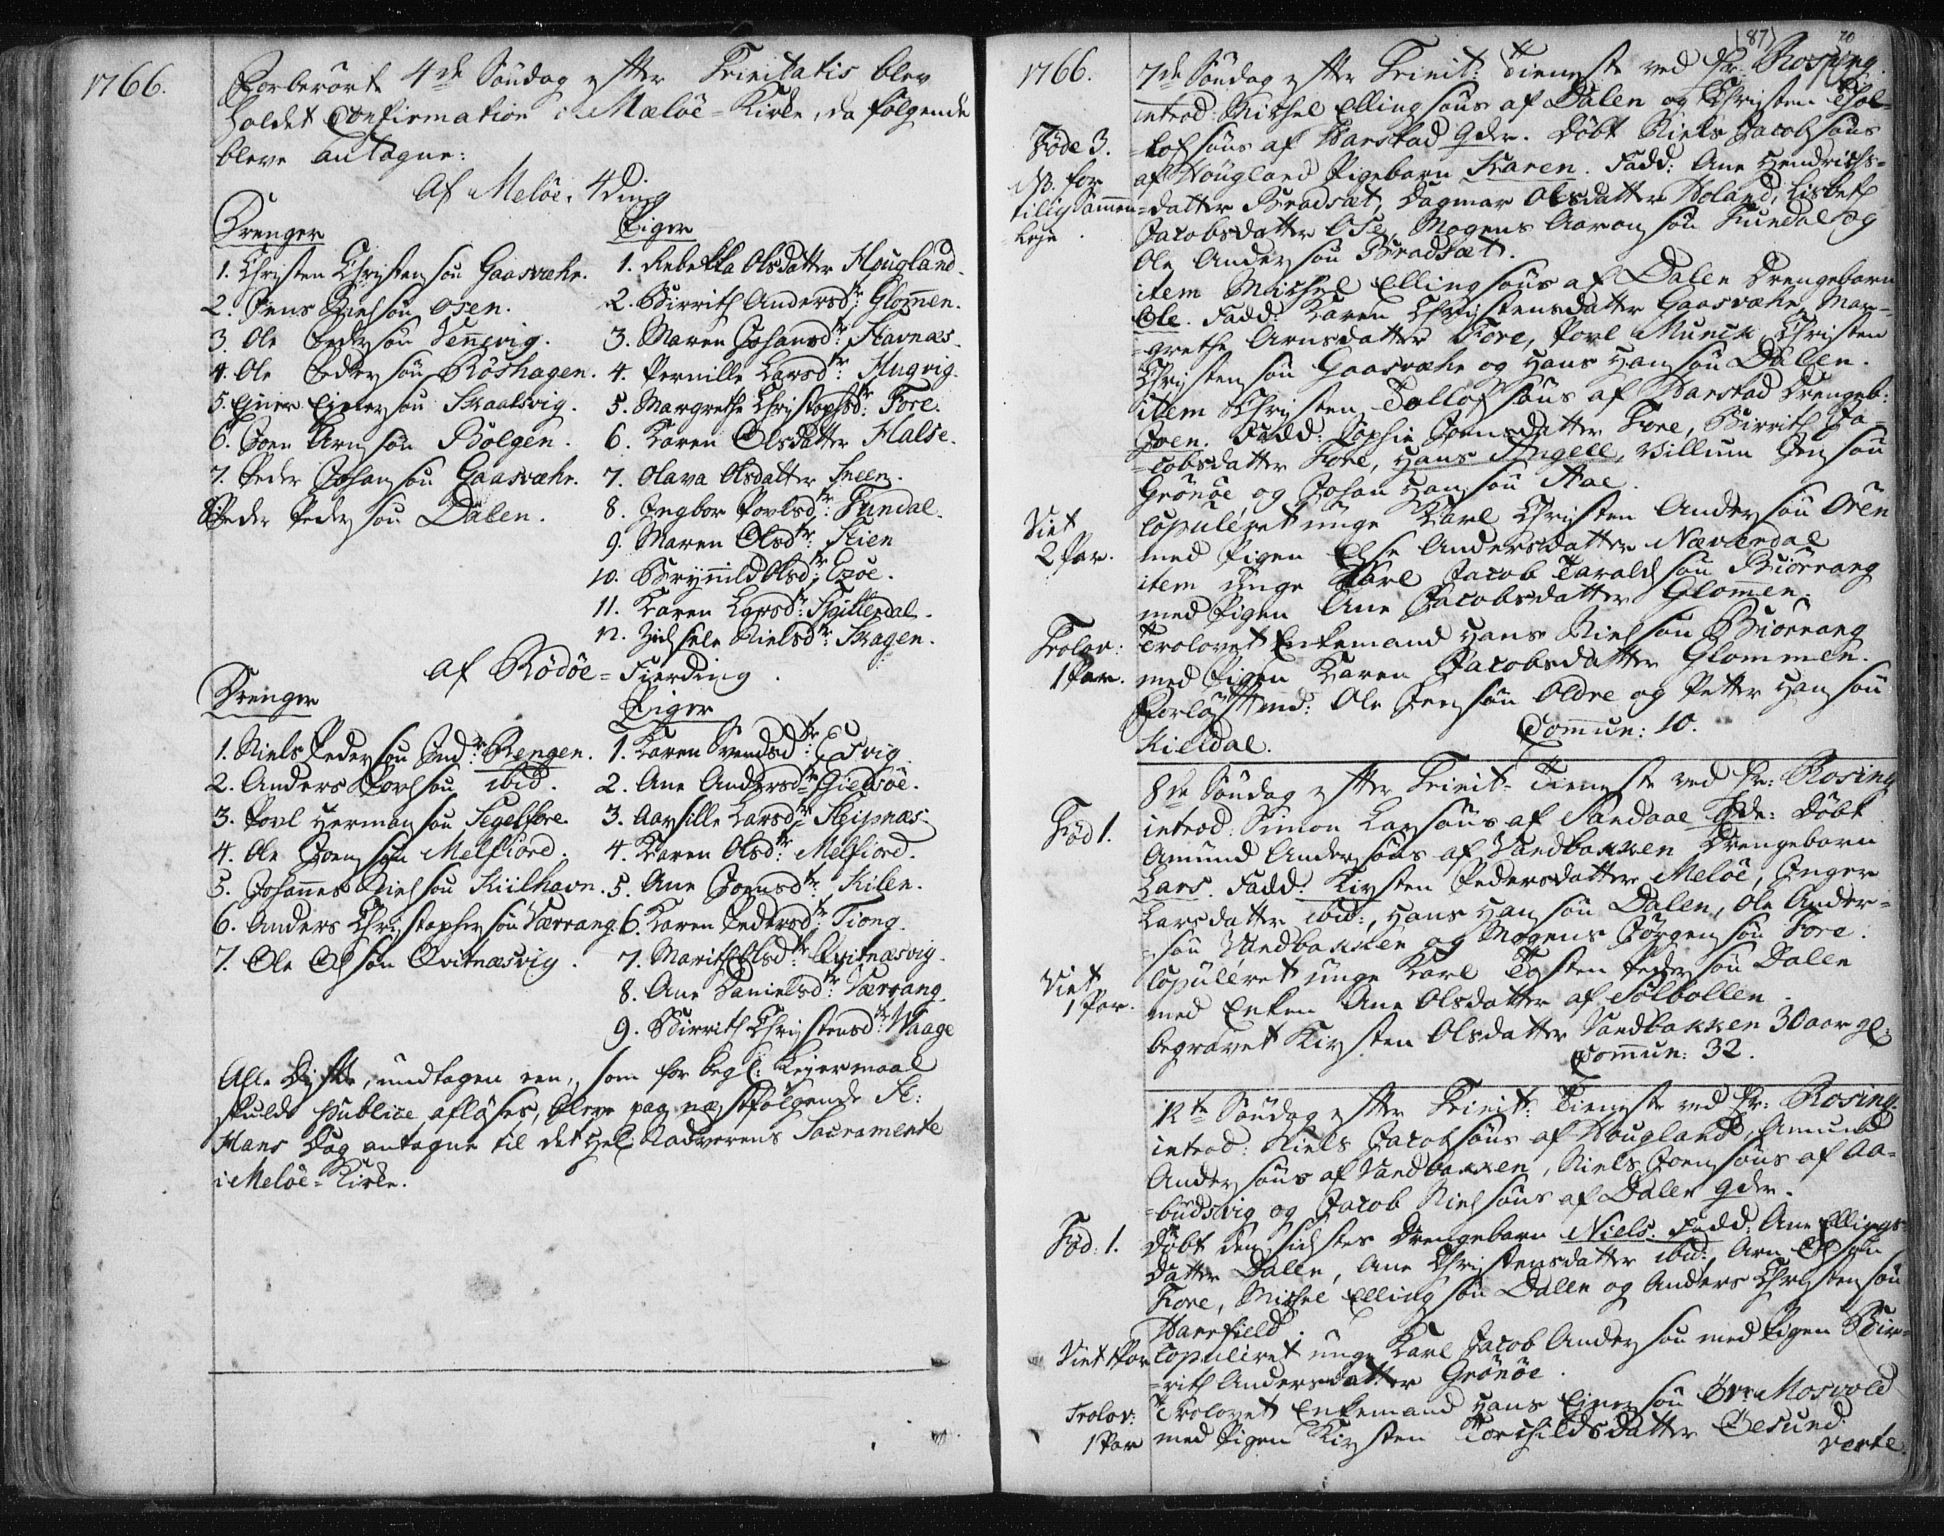 1766.
Forberørt 4de Søndag efter Trinitatis blev
holdet Confirmation i Meløe-Kirke, da følgende
bleve antagne:
Af Meløe 4ding
Drenger
1. Christen Christensøn Gaasvæhr.
2. Jens Nielsøn Osen.
3. Ole Pedersøn Vennevig.
4. Ole Pedersøn Røshagen.
5. Ejner Ejnersøn Skaalsvig.
6. Joen Arnsøn Bolgen.
7. Peder Johansøn Gaasvæhr.
8. Peder Pedersøn Dalen.
Piger
1. Rebekka Olsdatter Hougland.
2. Birrith Andersdtr: Glommen.
3. Maren Johansdtr: Stavnæs.
4. Pernille Larsdtr: Hugvig.
5. Margrethe Christophsdtr: Fore.
6. Karen Olsdatter Halse.
7. Olava Olsdatter Sneen.
8. Ingbor Povlsdtr: Fundal.
9. Maren Olsdtr: Stien
10. Brynnild Olsdtr: Enøe.
11. Karen Larsdtr: Spildredal.
12. Zidsele Nielsdtr: Skagen.
af Rødøe-Fierding.
Drenger
1. Niels Pedersøn Indr: Rengen.
2. Anders Povelsøn ibid.
3. Povl Hermansøn Segelfore.
4. Ole Joensøn Melfiord.
5. Johannes Nielsøn Kiilhavn.
6. Anders Christophersøn Værrang.
7. Ole Olsøn Qvitnæsvig.
Piger
1. Karen Svendsdtr: Esvig.
2. Ane Andersdtr: Gielsøe.
3. Aarsille Larsdtr: Skipnæs.
4. Karen Olsdtr: Melfiord.
5. Ane Joensdtr: Kilen.
6. Karen Pedersdtr: Tiong.
7. Marith Olsdtr: Qvitnæsvig.
8. Ane Danielsdtr: Værrang.
9. Birrith Christensdtr: Waage
Alle Disse, undtagen een, som for begl: Lejermaal
skulde publice afløses, bleve paa næstfølgende St:
Hans Dag antagne til det Hel: Nadverens Sacramente
i Meløe-Kirke.
187) 70
1766.
7de Søndag efter Trinit: Tieneste ved Hr: Rosing.
introd: Michel Ellingsøns af Dalen og Christen Thol-
=lofsøns af Harstad Qdr. Døbt Niels Jacobsøns
Føde 3.
af Hougland Pigebarn Karen. Fadd: Ane Hendrichs-
NB. for
=datter Bradsæt, Dagmar Olsdatter Holand, Lisbeth
tillig Sammen-
Jacobsdatter Ose, Mogens Aaronsøn Fundal og
=leje.
Ole Andersøn Bradsæt.
item Michel Ellingsøns af Dalen Drengebarn
Ole. Fadd: Karen Christensdatter Gaasvæhr, Mar-
=grethe Arnsdatter Fore, Povl Munch, Christen
Christensøn Gaasvæhr og Hans Hansøn Dalen.
item Christen Tollofsøns af Harstad Drengeb:
Joen. Fadd: Sophie Joensdatter Fore, Birrith Ja-
=cobsdatter Fore, Hans Angell, Villum Jensøn
Grønøe, og Johan Hansøn Aae.
Viet
2 Par.
copuleret unge Karl Christen Andersøn Ören
med Pigen Else Andersdatter Næverdal
item unge Karl Jacob Taraldsøn Biørrang
med Pigen Ane Jacobsdatter Glommen.
Trolov:
1 Par.
Trolovet Enkemand Hans Nielsøn Biørrang
med Pigen Karen Jacobsdatter Glommen.
Forløftmd: Ole Jensøn Oldre og Petter Hansøn
Kieldal.
Commun: 10.
8de Søndag efter Trinit- Tieneste ved Hr: Rosing
Fød 1.
introd: Simon Larsøns af Sandaae Qde: Døbt
Amund Andersøns af Sandbakken Drengebarn
Lars. Fadd: Kirsten Pedersdatter Meløe, Inger
Larsdatter ibid:, Hans Hansøn Dalen, Ole Ander-
=søn Sandbakken og Mogens Jørgensøn Fore.
Viet
1 Par.
Copuleret unge Karl Tosten Pedersøn Dalen
med Enken Ane Olsdatter af Solbollen.
begravet Kirsten Olsdatter Sandbakken 30 aar gl:
Commun: 32.
12te Søndag efter Trinit: Tieneste ved Hr: Rosing.
introd: Niels Jacobsøns af Hougland, Amund
Andersøns af Sandbakken, Niels Joensøns af Aa-
=budsvig og Jacob Nielsøns af Dalen Qdr.
Fød: 1.
Døbt den sidstes Drengebarn Niels. Fadd: Ane Ellings-
datter Dalen, Ane Christensdatter ibid:, Arn Olsøn
Fore, Michel Ellingsøn Dalen og Anders Christensøn
Harrfield.
Viet 1 Par
Copuleret unge Karl Jacob Andersøn med Pigen Bir-
=rith Andersdatter Grønøe.
Trolov:
1 Par
Trolovet Enkemand Hans Ejnersøn Övr: Mosvold
med Pigen Kirsten Torchildsdatter Øesund.
verte.